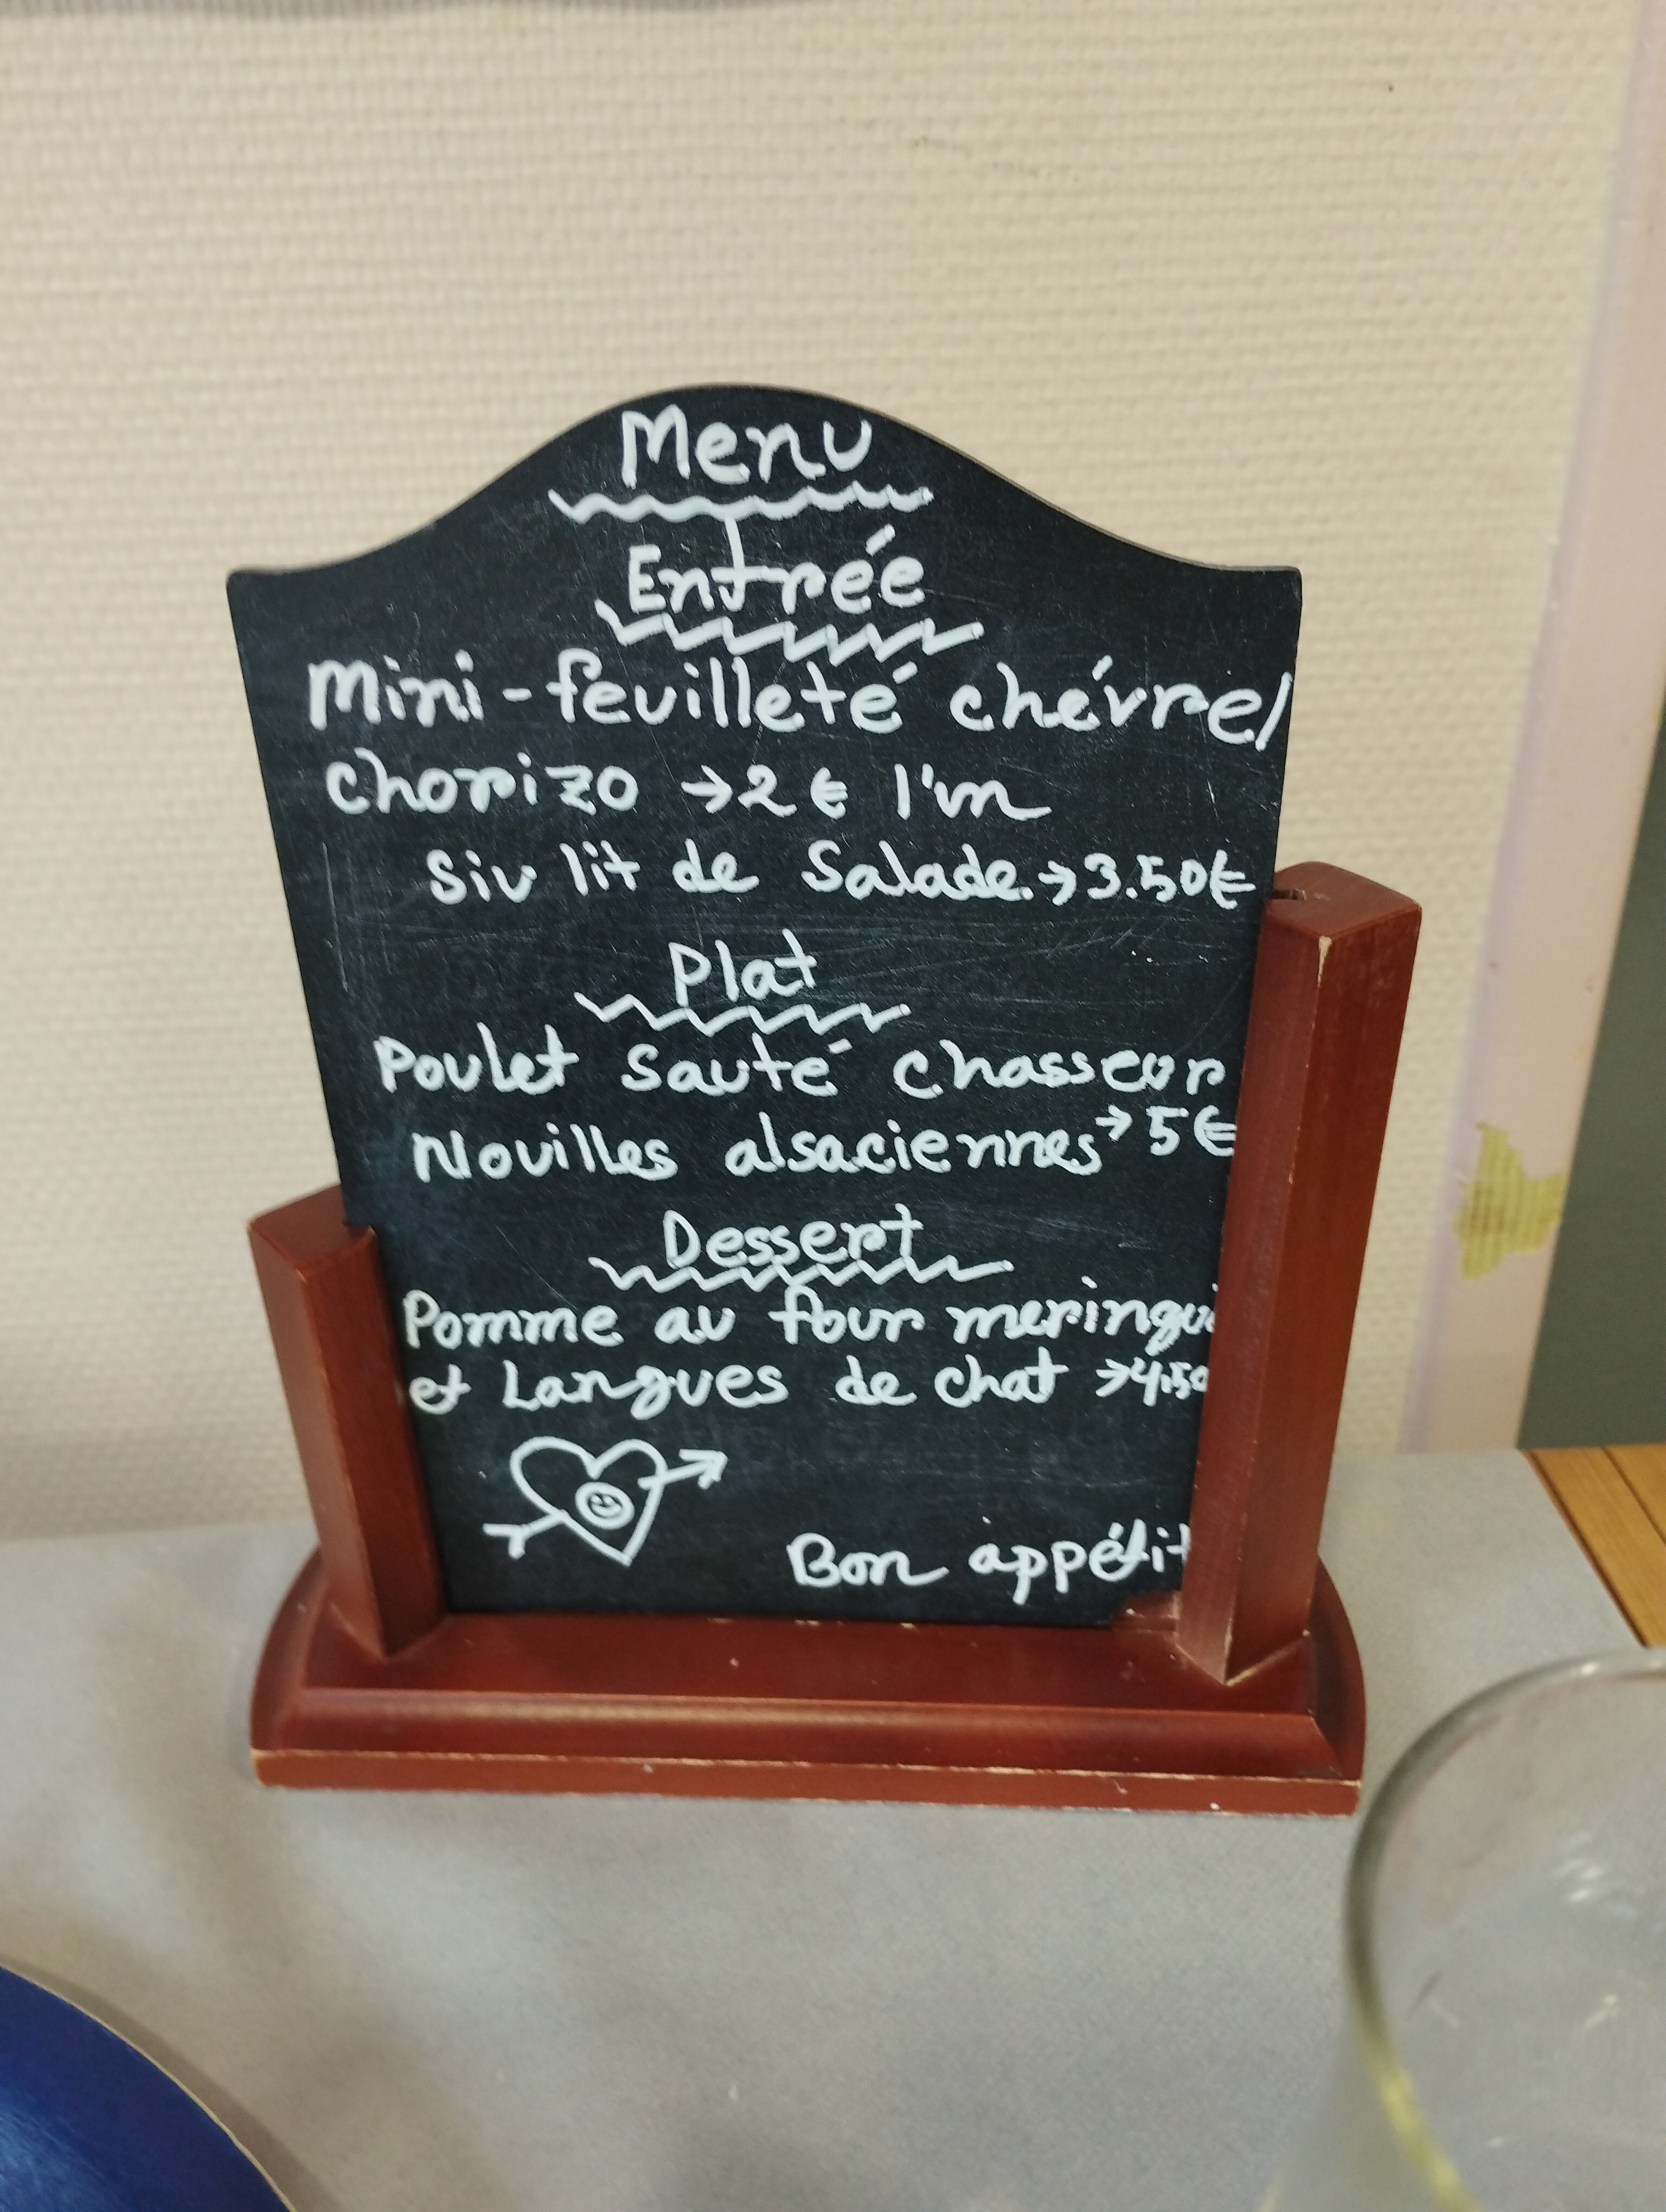 Menu
Entrée
Mini-feuilleté chévre/
chorizo →2€ l'un
Sur lit de Salade.→3.50€
Plat
Poulet Sauté chasseur
Nouilles alsaciennes→5€
Dessert
Pomme au four
et Langues de chat →4.50
Bon appétit